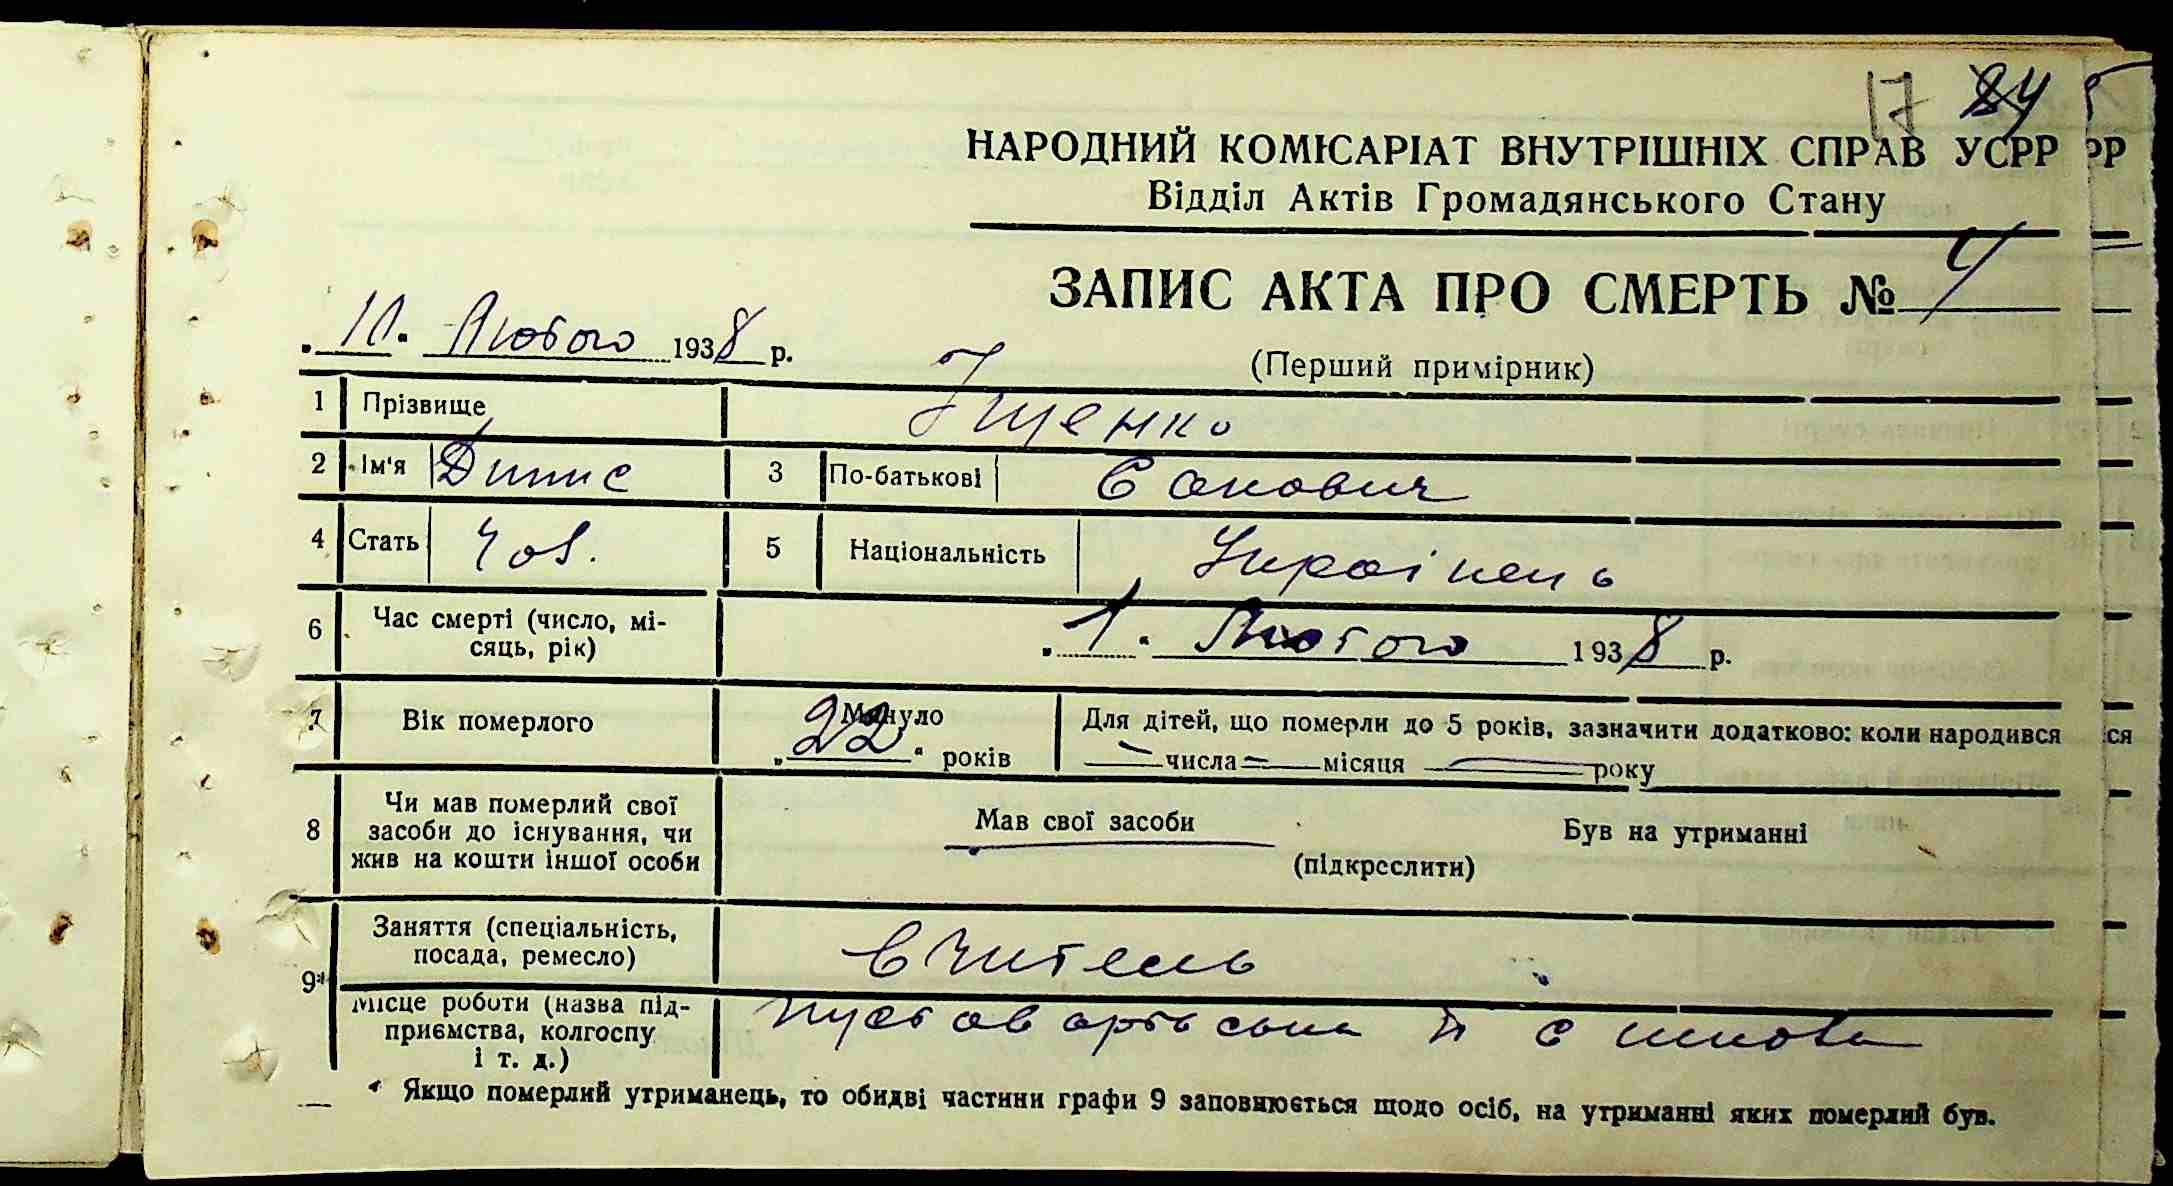 17 84
НАРОДНИЙ КОМІСАРІАТ ВНУТРІШНІХ СПРАВ УСРР РР
Відділ Актів Громадянського Стану
ЗАПИС АКТА ПРО СМЕРТЬ № 4
„11“ Лютого 1938 р.
(Перший примірник)
1 Прізвище Іщенко
2 Ім'я Динис 3 По-батькові Єанович
4 Стать Чов. 5 Національність Українець
6 Час смерті (число, місяць, рік) „1“ Лютого 1938 р.
7 Вік померлого Минуло „22“ років Для дітей, що померли до 5 років, зазначити додатково: коли народився ся
— числа — місяця — року
8 Чи мав померлий свої засоби до існування, чи жив на кошти іншої особи Мав свої засоби Був на утриманні
(підкреслити)
9* Заняття (спеціальність, посада, ремесло) вчитель
Місце роботи (назва підприємства, колгоспу і т. д.) Пустоварівська Н С школа
* Якщо померлий утриманець, то обидві частини графи 9 заповнюється щодо осіб, на утриманні яких померлий був.